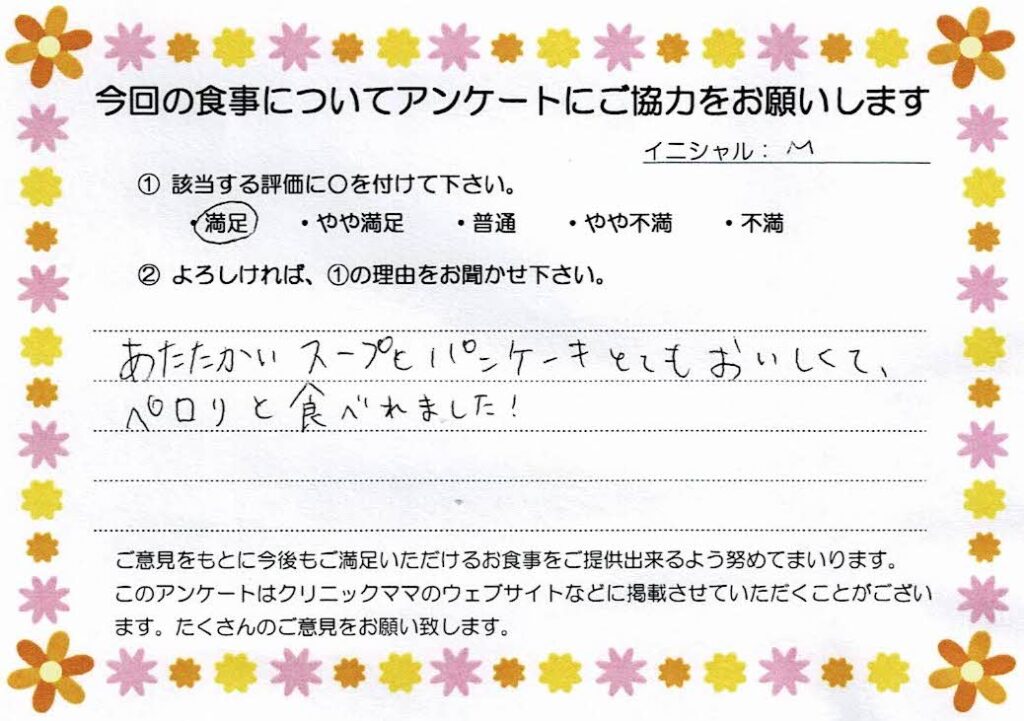 今回の食事についてアンケートにご協力をお願いします
イニシャル： M
① 該当する評価に〇を付けて下さい。
・満足 ・やや満足 ・普通 ・やや不満 ・不満
② よろしければ、①の理由をお聞かせ下さい。
あたたかいスープとパンケーキとてもおいしくて、
ペロリと食べれました！
ご意見をもとに今後もご満足いただけるお食事をご提供出来るよう努めてまいります。
このアンケートはクリニックママのウェブサイトなどに掲載させていただくことがござい
ます。たくさんのご意見をお願い致します。